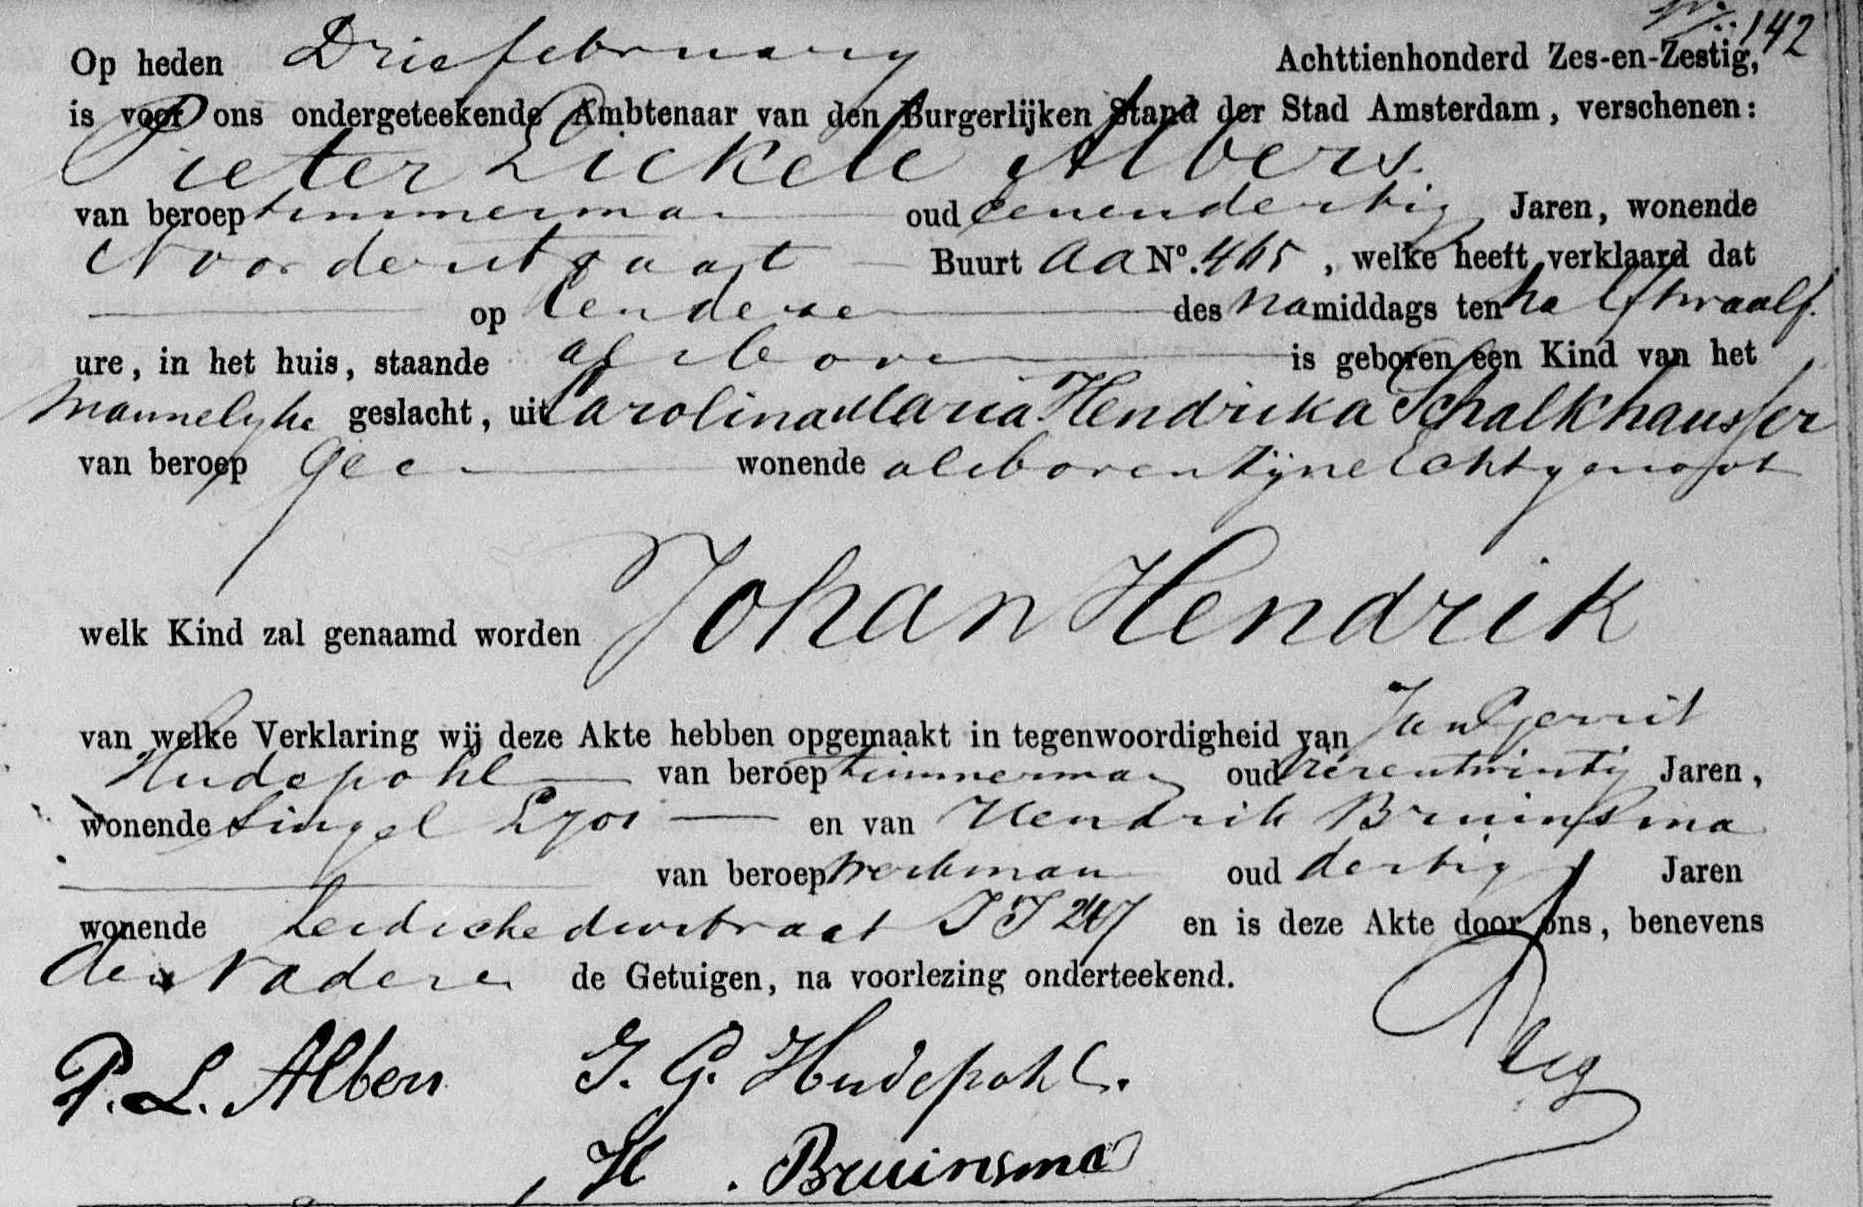 142
Op heden Drie february Achttienhonderd Zes-en-Zestig,
is voor ons ondergeteekende Ambtenaar van den Burgerlijken Stand der Stad Amsterdam, verschenen:
Pieter Lickele Albers.
van beroep timmerman oud eenendertig Jaren, wonende
Noorderstraat Buurt AA No. 465, welke heeft verklaard dat
op eendezer des namiddags ten half twaalf
ure, in het huis, staande alsboven is geboren een Kind van het
Mannelyke geslacht, uit Carolina Maria Hendrika Schalkhausser
van beroep geen wonende alsboven Zijne Echtgenoot
welk Kind zal genaamd worden Johan Hendrik
van welke Verklaring wij deze Akte hebben opgemaakt in tegenwoordigheid van Jan Gerrit
Hudepohl van beroep timmerman oud vierentwintig Jaren,
wonende Singel en van Hendrik Bruinsma
van beroep werkman oud dertig Jaren
wonende Leidschedwarstraat JJ 247 en is deze Akte door ons, benevens
den Vader en de Getuigen, na voorlezing onderteekend.
P. L. Albers J. G. Hudepohl.
H. Bruinsma